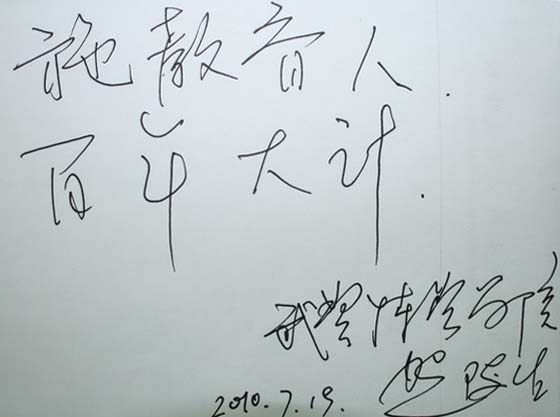 施教育人.
百年大计.
武汉体育学院
2010.7.19.